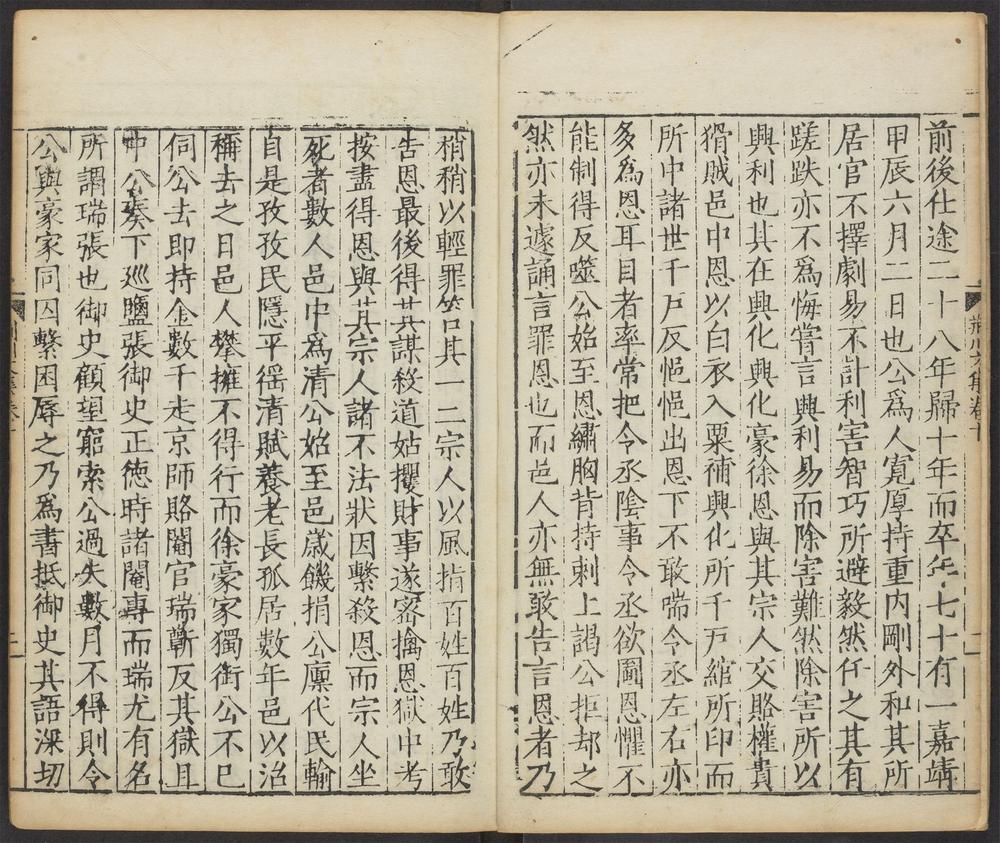 前後仕途二十八年歸十年而卒年七十有一嘉靖
甲辰六月二日也公爲人寬厚持重内剛外和其所
居官不擇劇易不計利害智巧所避毅然任之其有
蹉跌亦不爲悔嘗言興利易而除害難然除害所以
興利也其在興化興化豪徐恩與其宗人交賂權貴
猾賊邑中恩以白衣入粟補興化所千戸綰所印而
所中諸世千戸反悒悒出恩下不敢喘令丞左右亦
多爲恩耳目者率常把令丞陰事令丞欲圖恩懼不
能制得反噬公始至恩繡胸背持剌上謁公拒却之
然亦未遽誦言罪恩也而邑人亦無敢告言恩者乃
荆川文集卷十
稍稍以輕罪笞其一二宗人以風指百姓百姓乃敢
告恩最後得其謀殺道姑攫財事遂密擒恩獄中考
按盡得恩與其宗人諸不法狀因繫殺恩而宗人坐
死者數人邑中爲清公始至邑歳饑捐公廪代民輸
自是孜孜民隱平徭清賦養老長孤居數年邑以治
稱去之日邑人攀擁不得行而徐豪家獨銜公不已
伺公去即持金數千走京師賂閹官瑞蘄反其獄且
中公奏下廵鹽張御史正徳時諸閹專而瑞尤有名
所謂瑞張也御史顧望窮索公過失數月不得則令
公與豪家同囚繫困辱之乃爲書抵御史其語深切